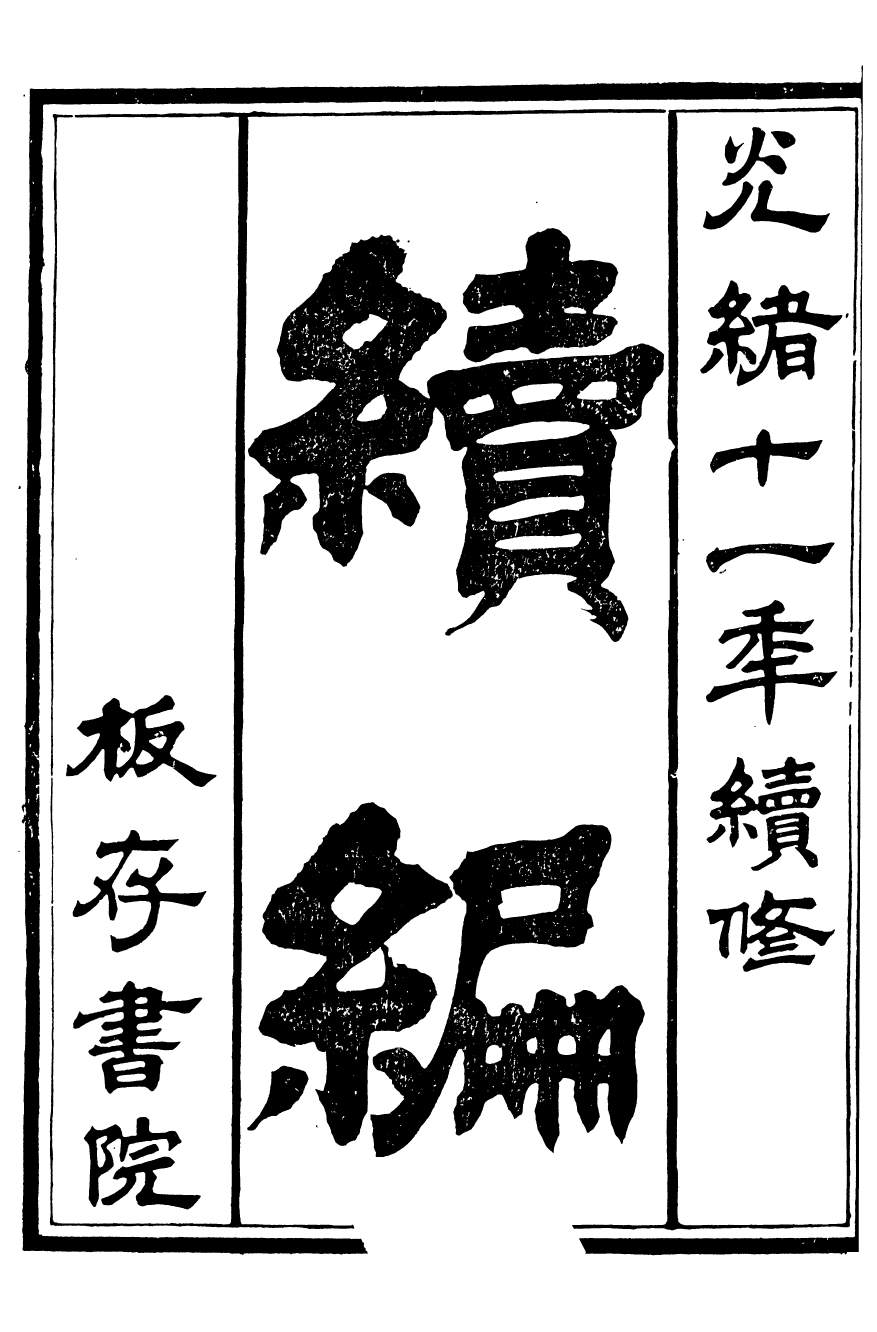 光緒十一季續修
續編
板存書院